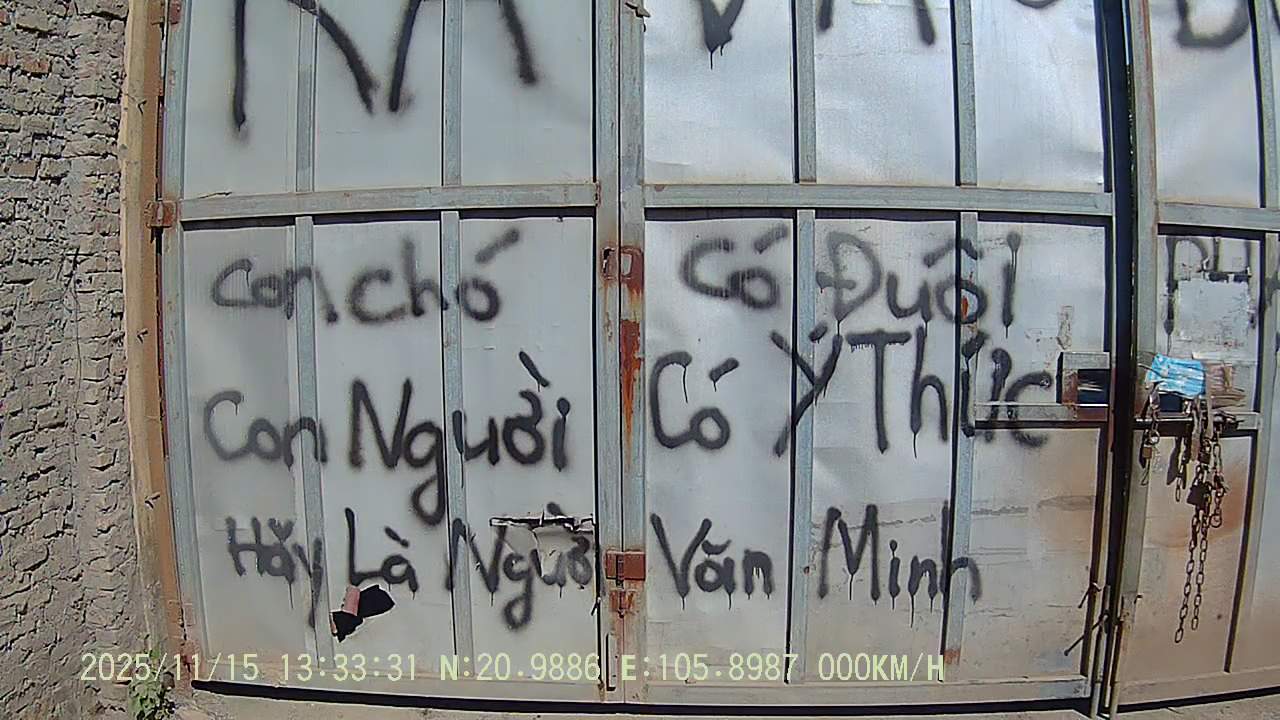 RA VÀO
Con chó Có Đuôi
Con Người Có Ý Thức
Hãy Là Người Văn Minh
2025/11/15 13:33:31 N:20.9886 E:105.8987 000KM/H